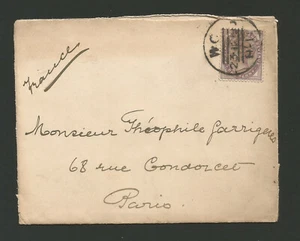 France
W.C
Monsieur Théophile Garrigues
68 rue Condorcet
Paris.